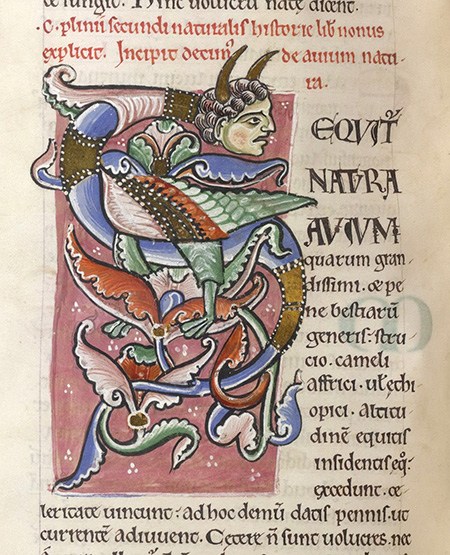 Hinc volucrū natę dicent.
C. plinii secundi naturalis historie lib' nonus
explicit. Incipit decim' de avium natu
ra.
SEQUIT'
NATURA
AVIUM
quarum gran-
dissimi. & pe-
ne bestiarū
generis. stru-
cio. cameli
affrici. ul' ęthi-
opici. altitu-
dinē equitis
insidentis eq'.
excedunt. ce-
leritate vincunt. ad hoc demū datis pennis. ut
currentē adiuvent. Cetere ñ sunt volucres. nec